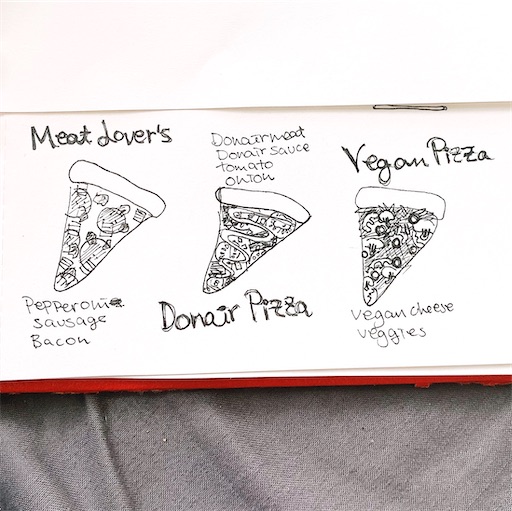 Meat Lover's
Pepperoni
sausage
Bacon
Donair meat
Donair sauce
tomato
onion
Donair Pizza
Vegan Pizza
Vegan cheese
veggies